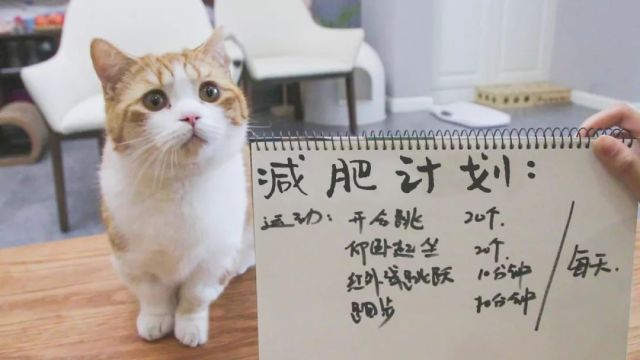 减肥计划:
运动: 开合跳 20个.
仰卧起坐 20个.
红外线跳跃 10分钟
跑步 10分钟
/每天.